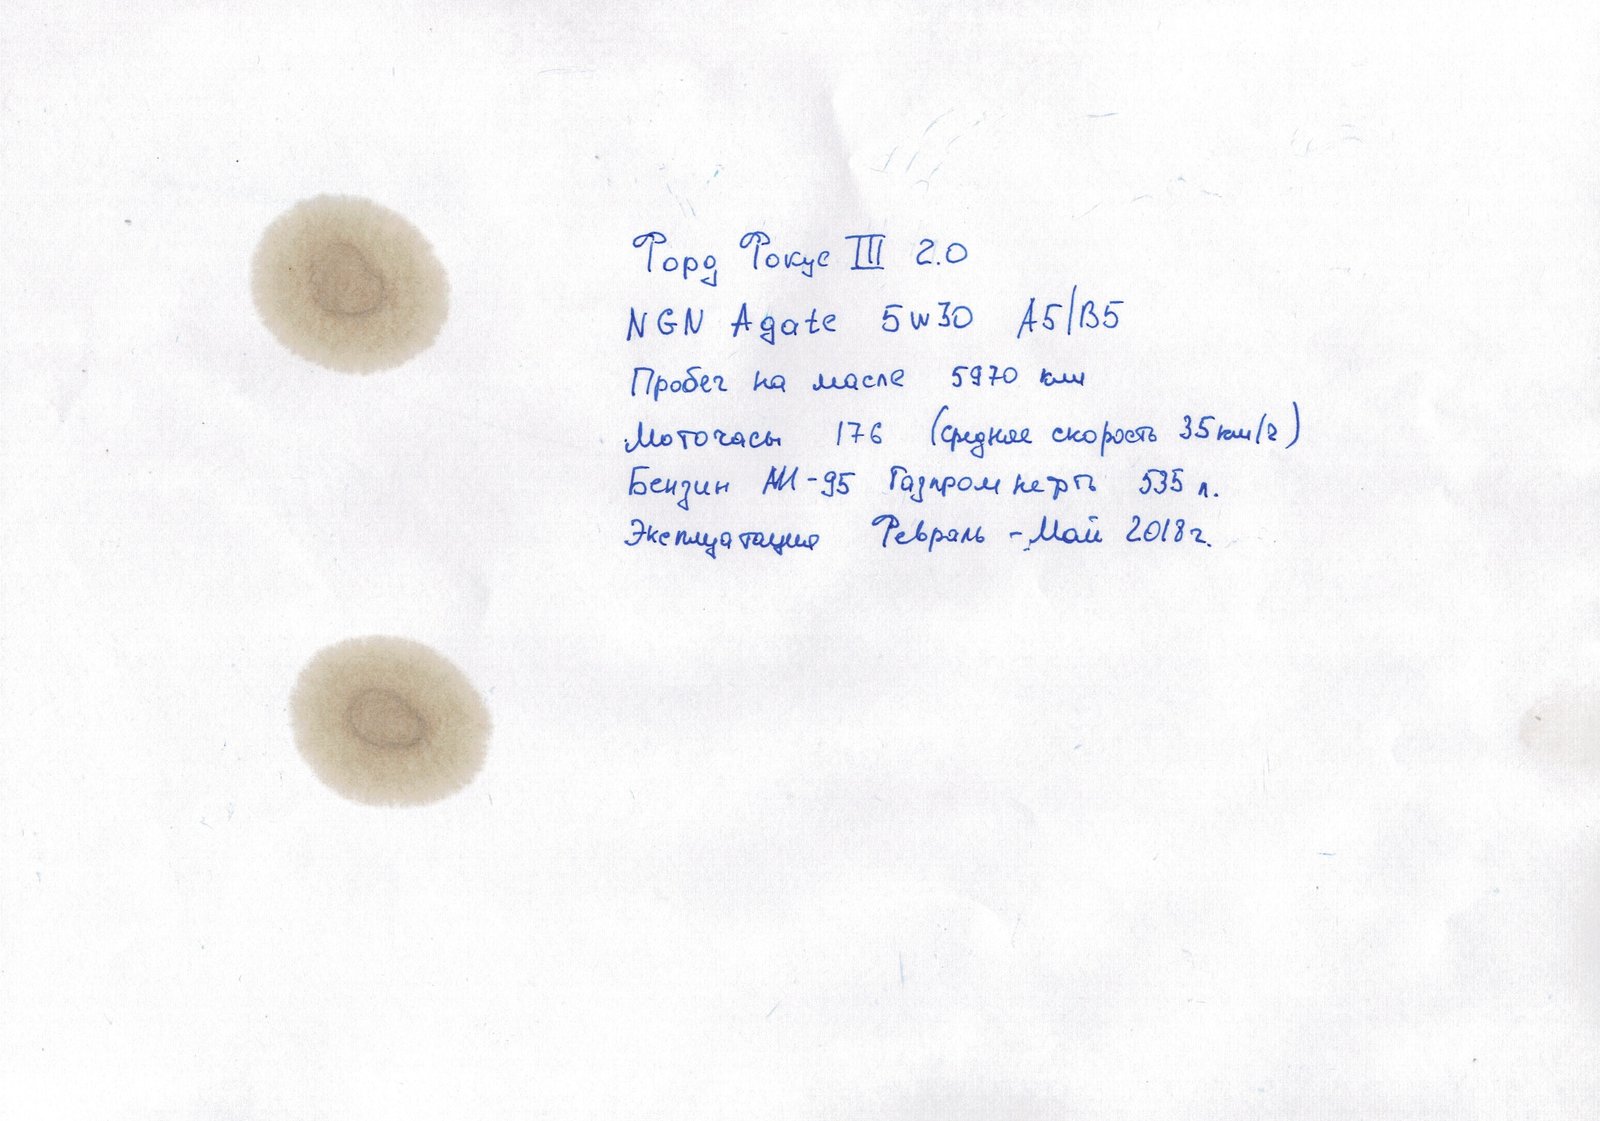 Форд Фокус III 2.0
NGN Agate 5w30 A5/B5
Пробег на масле 5970 км
Моточасы 176 (средняя скорость 35км/г)
Бензин АИ-95 Газпромнефть 535 л.
Эксплуатация Февраль - Май 2018г.